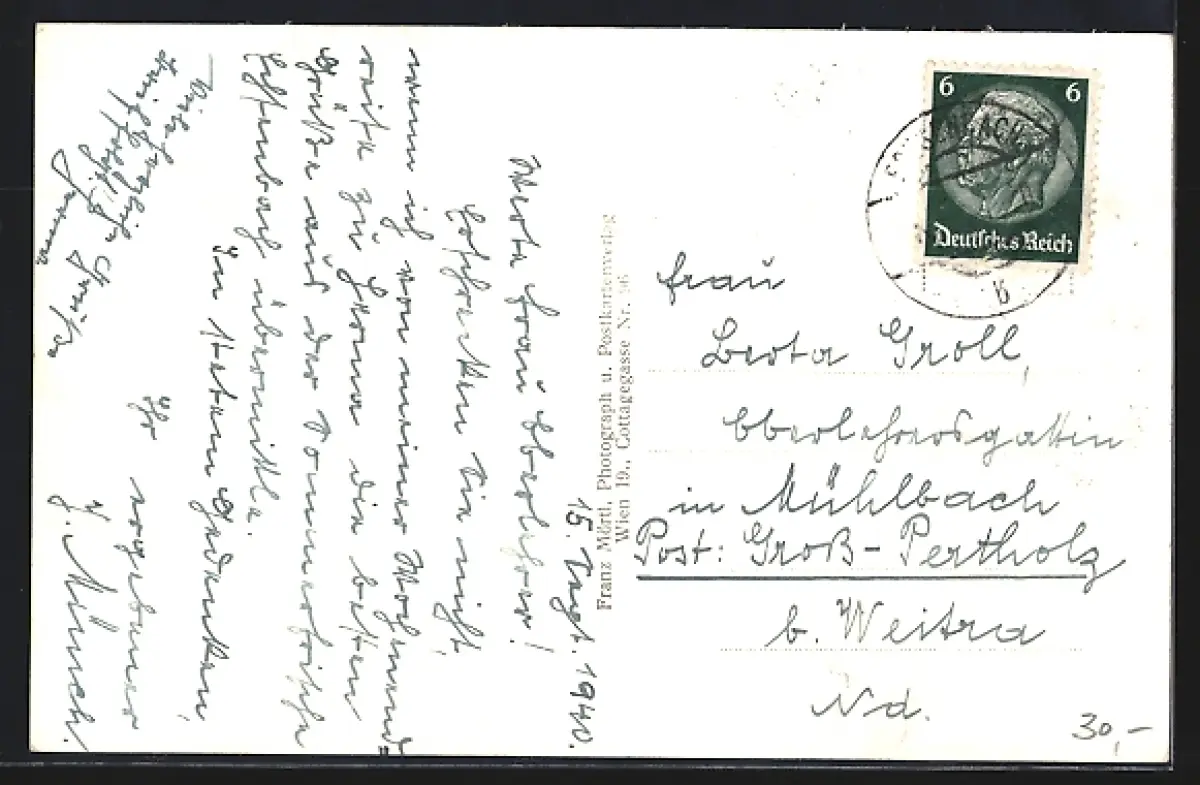 15. Sept. 1940.
Werte Frau Oberlehrer!
Erschrecken Sie nicht,
wenn ich von meiner Wochenend=
reise zu Hanna die besten
Grüße aus der Sommerfrische
übermittle.
In stetem Gedenken,
Ihr
ergebener
J. Münch.
Viele herzliche Grüße
Franz Mörtl, Photograph u. Postkartenverlag
Wien 19., Cottagegasse Nr. 36
6 6
Deutsches Reich
b
Frau
Berta Groll,
Oberlehrersgattin
in Mühlbach
Post: Groß-Pertholz
b. Weitra
Nd.
30,-